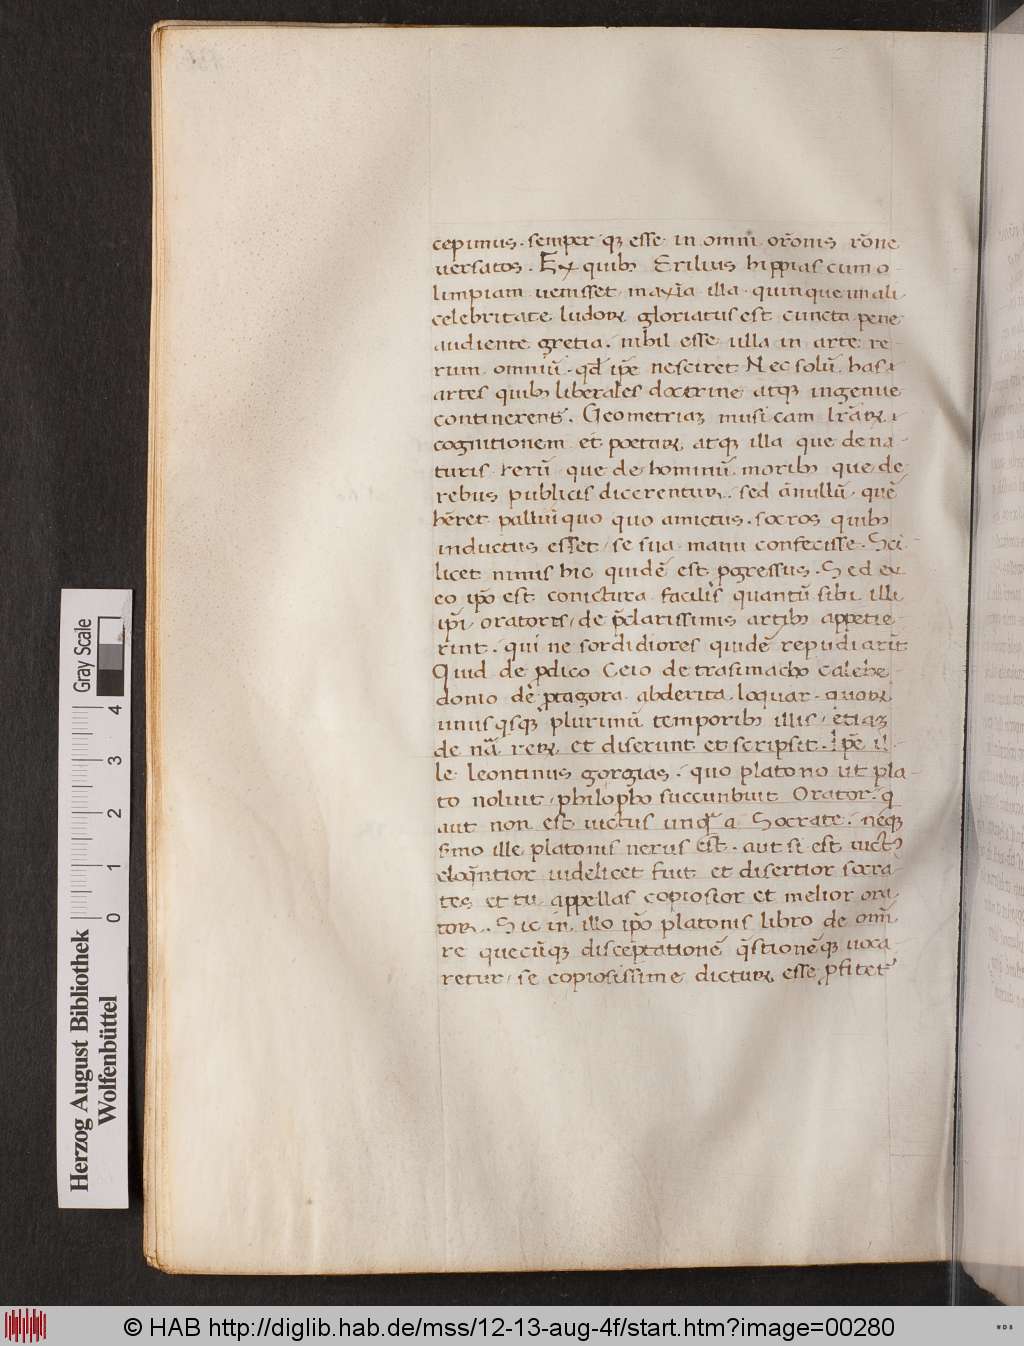 cepimus. semper qȝ esse in omni or̄onis rōne
uersatos. Ex quibꝫ Erilius hippias cum o-
limpiam uenisset maxīa illa quinquennali
celebritate ludoꝝ gloriatus est cuncta pene
audiente gretia. nihil esse ulla in arte re-
rum omniū. qd̄ ip̄e nesciret Nec solū has
artes quibꝫ liberales doctrine atqꝫ ingenue
continerent᷑. Geometriaȝ musicam lr̄aꝝ
cognitionem et poetaꝝ, atqꝫ illa que de na-
turis rerū que de hominū moribꝫ que de
rebus publicis dicerentur. sed ānullū. quē
hēret palliū quo quo amictus. socros quibꝫ
inductus esset se sua manu confecisse. Sci
licet nimis hic quidē est ꝓgressus. Sed ex
eo ip̄o est coniectura facilis quantū sibi illi
ip̄i oratores de p̄clarissimis artibꝫ appetie-
rint. qui ne sordidiores quidē repudiarīt
Quid de ꝓdico Ceio de trasimacho calche-
donio dē ꝓtagora abderita loquar. quoꝝ
unus qisqꝫ plurimū temporibꝫ illis etiaȝ
de nā reꝝ et diserunt et scripsit. ip̄e il-
le leontinus gorgias. quo patrono ut pla-
to noluit philopho succunbuit Orator. q
aut non est uictus unq̄ a Socrate. neqꝫ
smo ille platonis uerus est. aut si est uictꝰ
eloq̄ntior uidelicet fuit et disertior socra
tes et tu appellas copiosior et melior ora
tor. Sic in illo ip̄o platonis libro de omī
re quecūqꝫ disceptationē q̄stionēqꝫ uoca-
retur se copiosissime dicturꝝ esse ꝓfitet᷑
Gray Scale
0 1 2 3 4
Herzog August Bibliothek
Wolfenbüttel
© HAB http://diglib.hab.de/mss/12-13-aug-4f/start.htm?image=00280